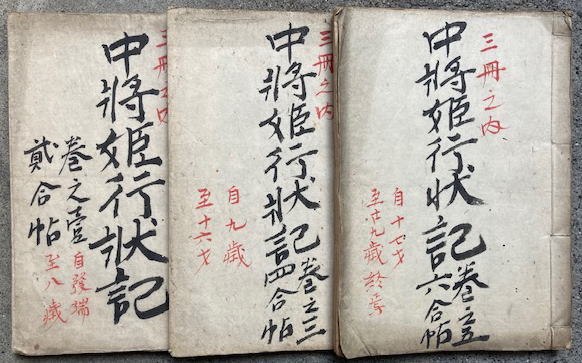 三冊之内
中將姫行狀記
卷之壹
貳合帖
自發端
至八歳
三冊之内
中將姫行狀記
卷之三
四合帖
自九歳
至十六才
三冊之内
中將姫行状記
卷之五
六合帖
自十七才
至廿九歳終焉